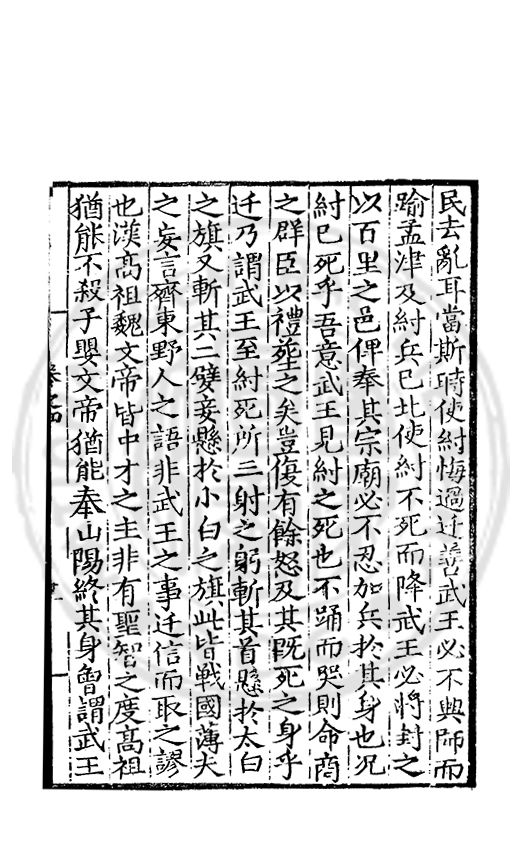 民去亂耳當斯時使紂悔過遷善武王必不興師而
踰孟津及紂兵已北使紂不死而降武王必將封之
以百里之邑俾奉其宗廟必不忍加兵於其身也况
紂已死乎吾意武王見紂之死也不踊而哭則命商
之群臣以禮塟之矣豈復有餘怒及其既死之身乎
迁乃謂武王至紂死所三射之躬斬其首懸於太白
之旗又斬其二嬖妾懸於小白之旗此皆戰國薄夫
之妄言齊東野人之語非武王之事迁信而取之謬
也漢高祖魏文帝皆中才之主非有聖智之度高祖
猶能不殺子嬰文帝猶能奉山陽終其身曾謂武王
卷之四